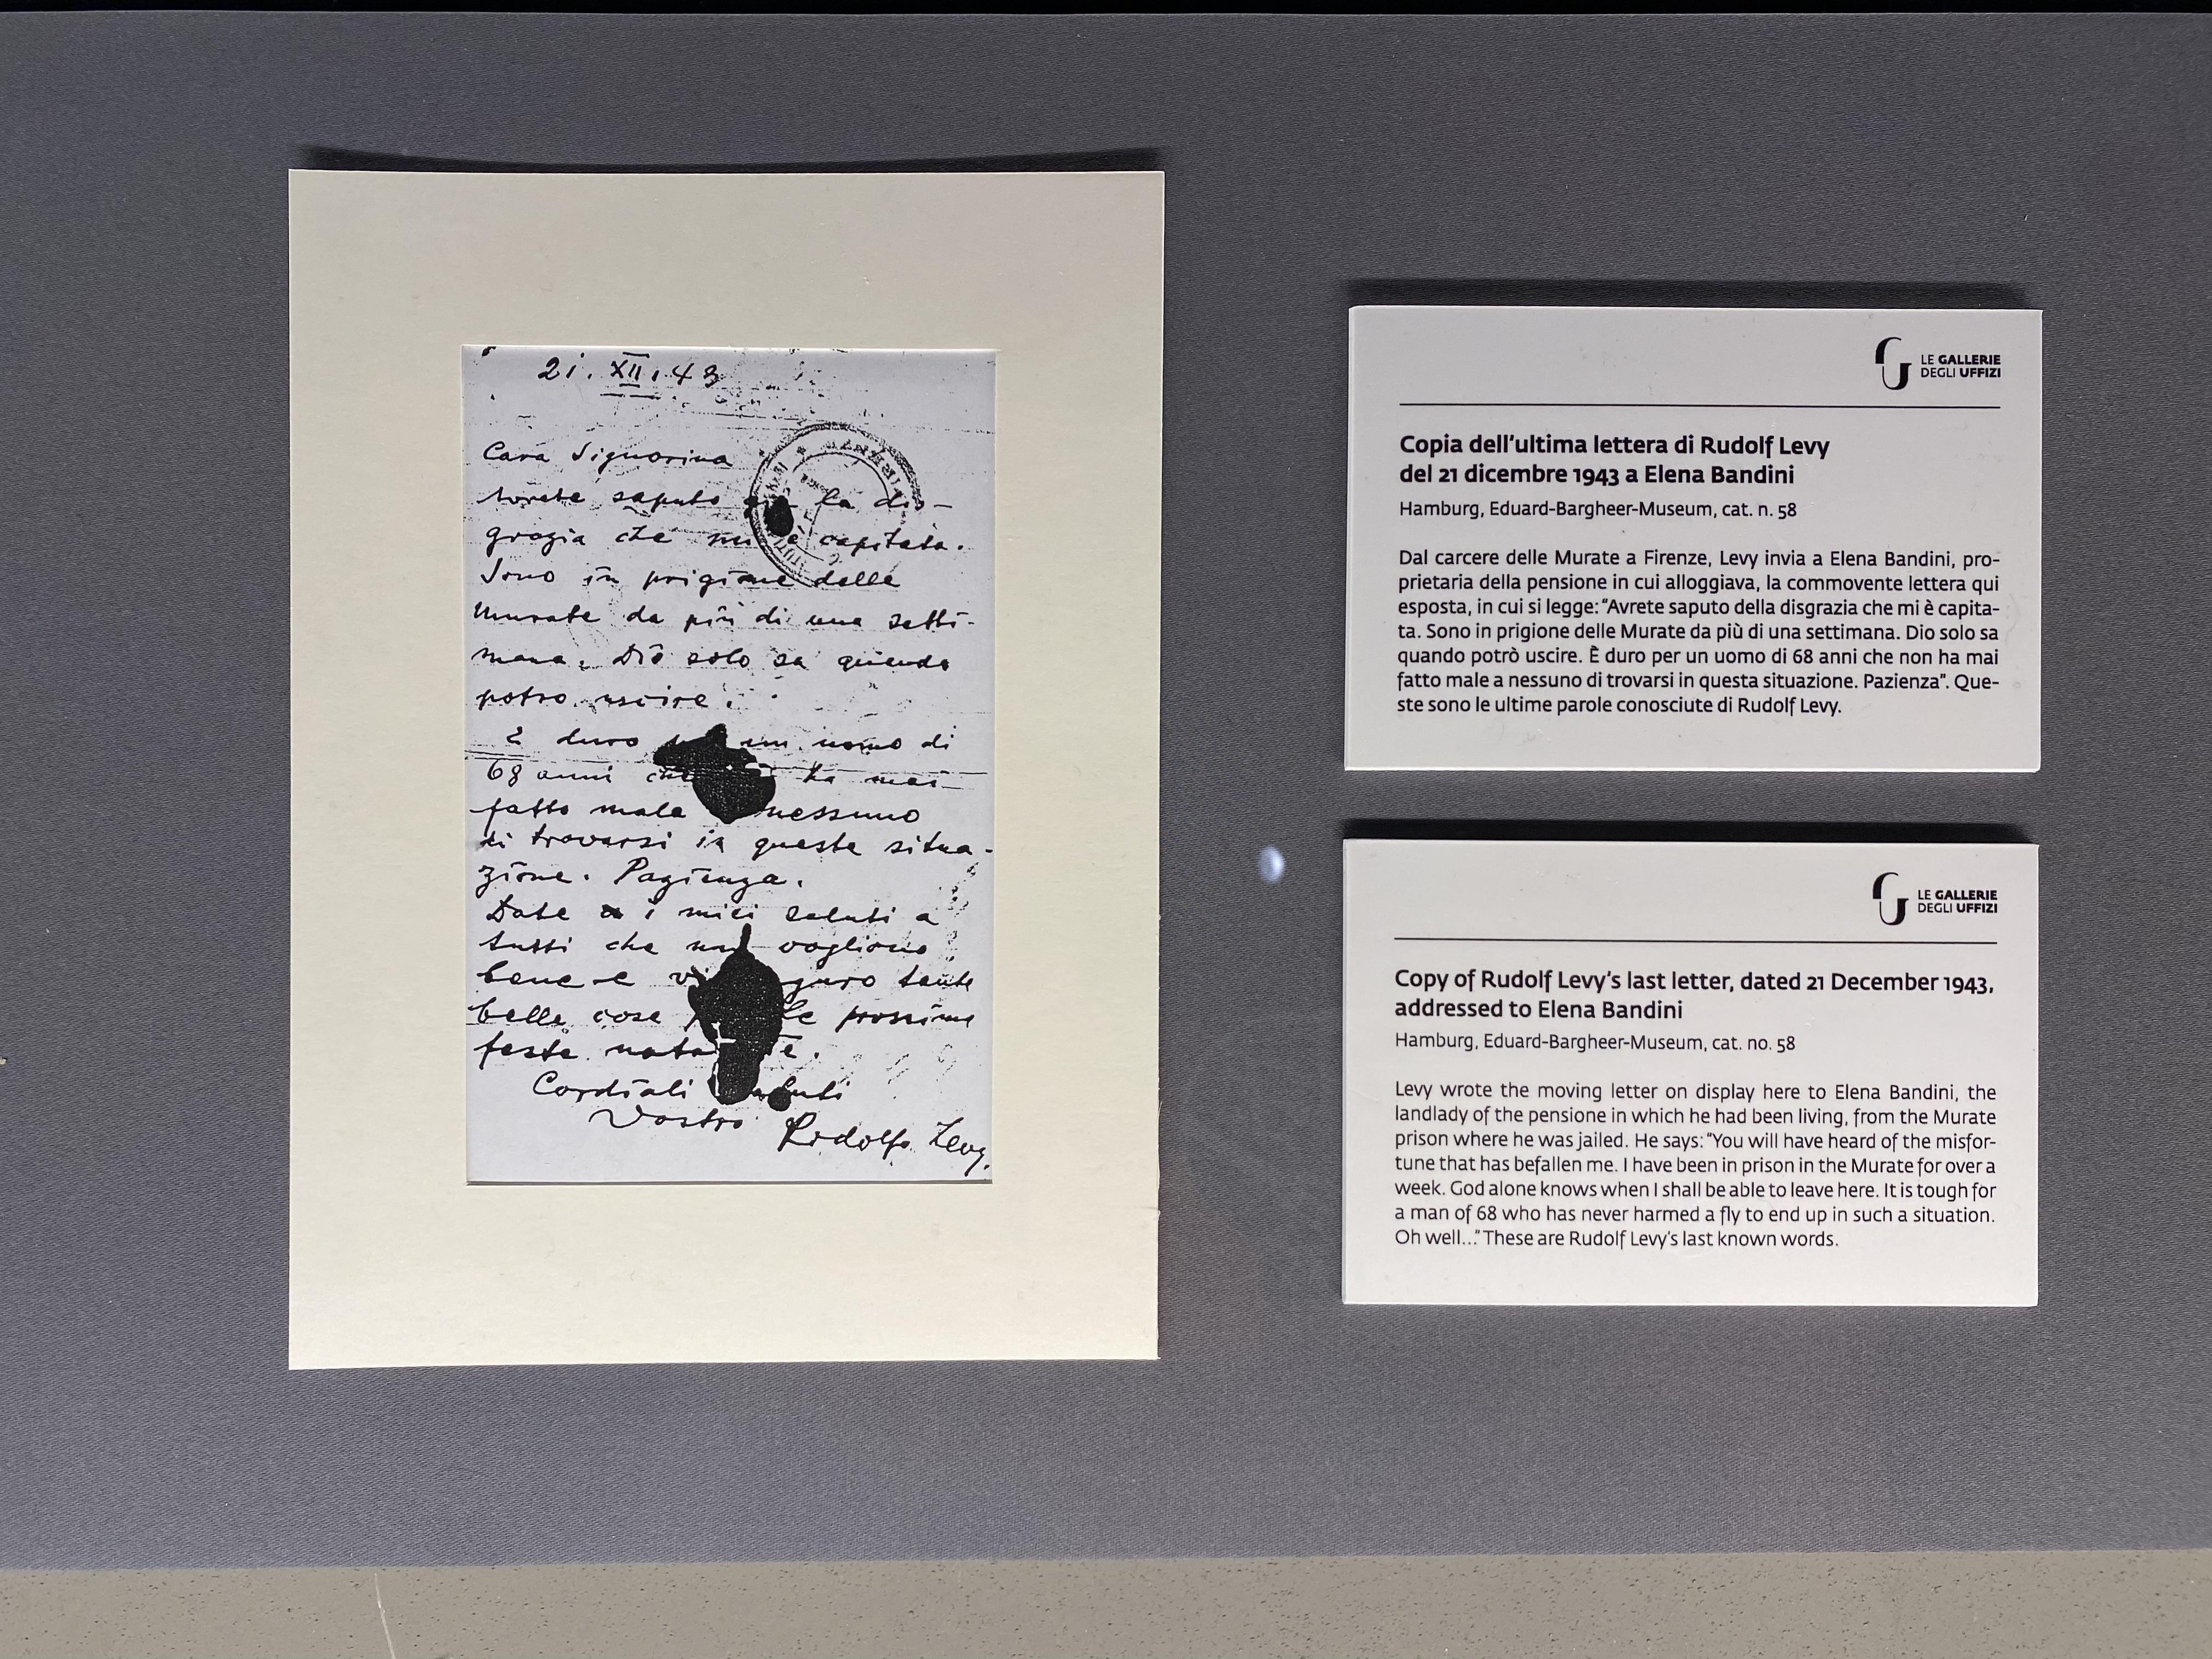 21. XII. 43
Cara Signorina
avrete saputo la dis-
grazia che mi è capitata.
Sono in prigione delle
Murate da più di una setti-
mana. Dio solo sa quando
potro uscire.
È duro un uomo di
68 anni che ha mai
fatto male nessuno
di trovarsi in questa situa-
zione. Pazienza.
Date i miei saluti a
tutti che mi vogliono
bene e tante
belle cose le prossime
feste
Cordiali saluti
Vostro Rudolfo Levy.
LE GALLERIE
DEGLI UFFIZI
Copia dell'ultima lettera di Rudolf Levy
del 21 dicembre 1943 a Elena Bandini
Hamburg, Eduard-Bargheer-Museum, cat. n. 58
Dal carcere delle Murate a Firenze, Levy invia a Elena Bandini, pro-
prietaria della pensione in cui alloggiava, la commovente lettera qui
esposta, in cui si legge: “Avrete saputo della disgrazia che mi è capita-
ta. Sono in prigione delle Murate da più di una settimana. Dio solo sa
quando potrò uscire. È duro per un uomo di 68 anni che non ha mai
fatto male a nessuno di trovarsi in questa situazione. Pazienza”. Que-
ste sono le ultime parole conosciute di Rudolf Levy.
LE GALLERIE
DEGLI UFFIZI
Copy of Rudolf Levy's last letter, dated 21 December 1943,
addressed to Elena Bandini
Hamburg, Eduard-Bargheer-Museum, cat. no. 58
Levy wrote the moving letter on display here to Elena Bandini, the
landlady of the pensione in which he had been living, from the Murate
prison where he was jailed. He says: “You will have heard of the misfor-
tune that has befallen me. I have been in prison in the Murate for over a
week. God alone knows when I shall be able to leave here. It is tough for
a man of 68 who has never harmed a fly to end up in such a situation.
Oh well...” These are Rudolf Levy's last known words.